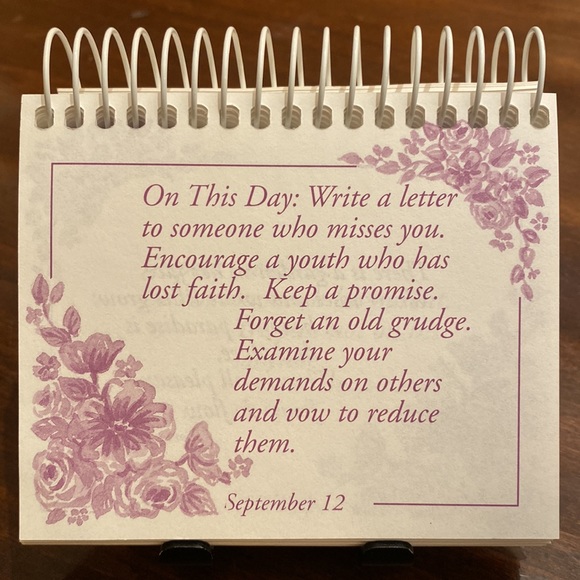 On This Day: Write a letter
to someone who misses you.
Encourage a youth who has
lost faith. Keep a promise.
Forget an old grudge.
Examine your
demands on others
and vow to reduce
them.
September 12